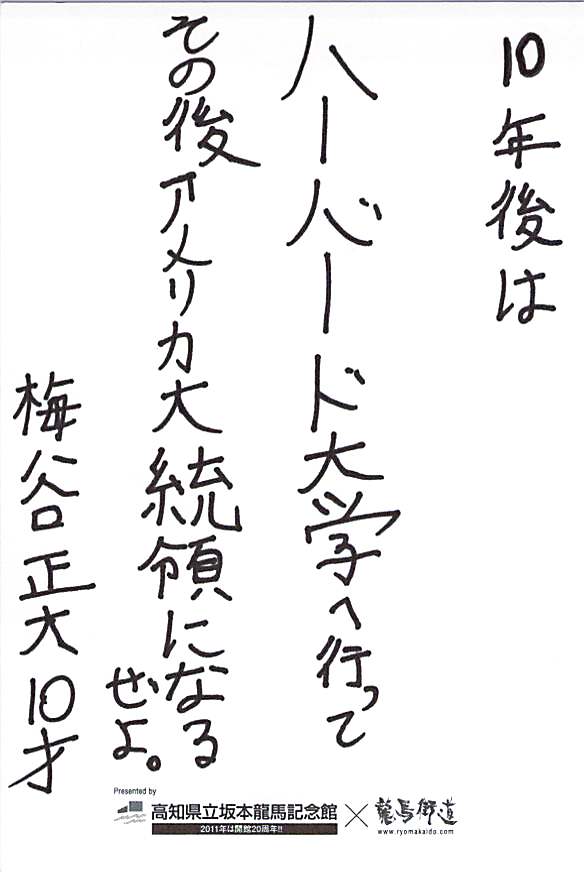 10年後は
ハーバード大学へ行って
その後アメリカ大統領になる
ぜよ。
梅谷正大10才
Presented by
高知県立坂本龍馬記念館×龍馬街道
2011年は開館20周年!!
www.ryomakaido.com